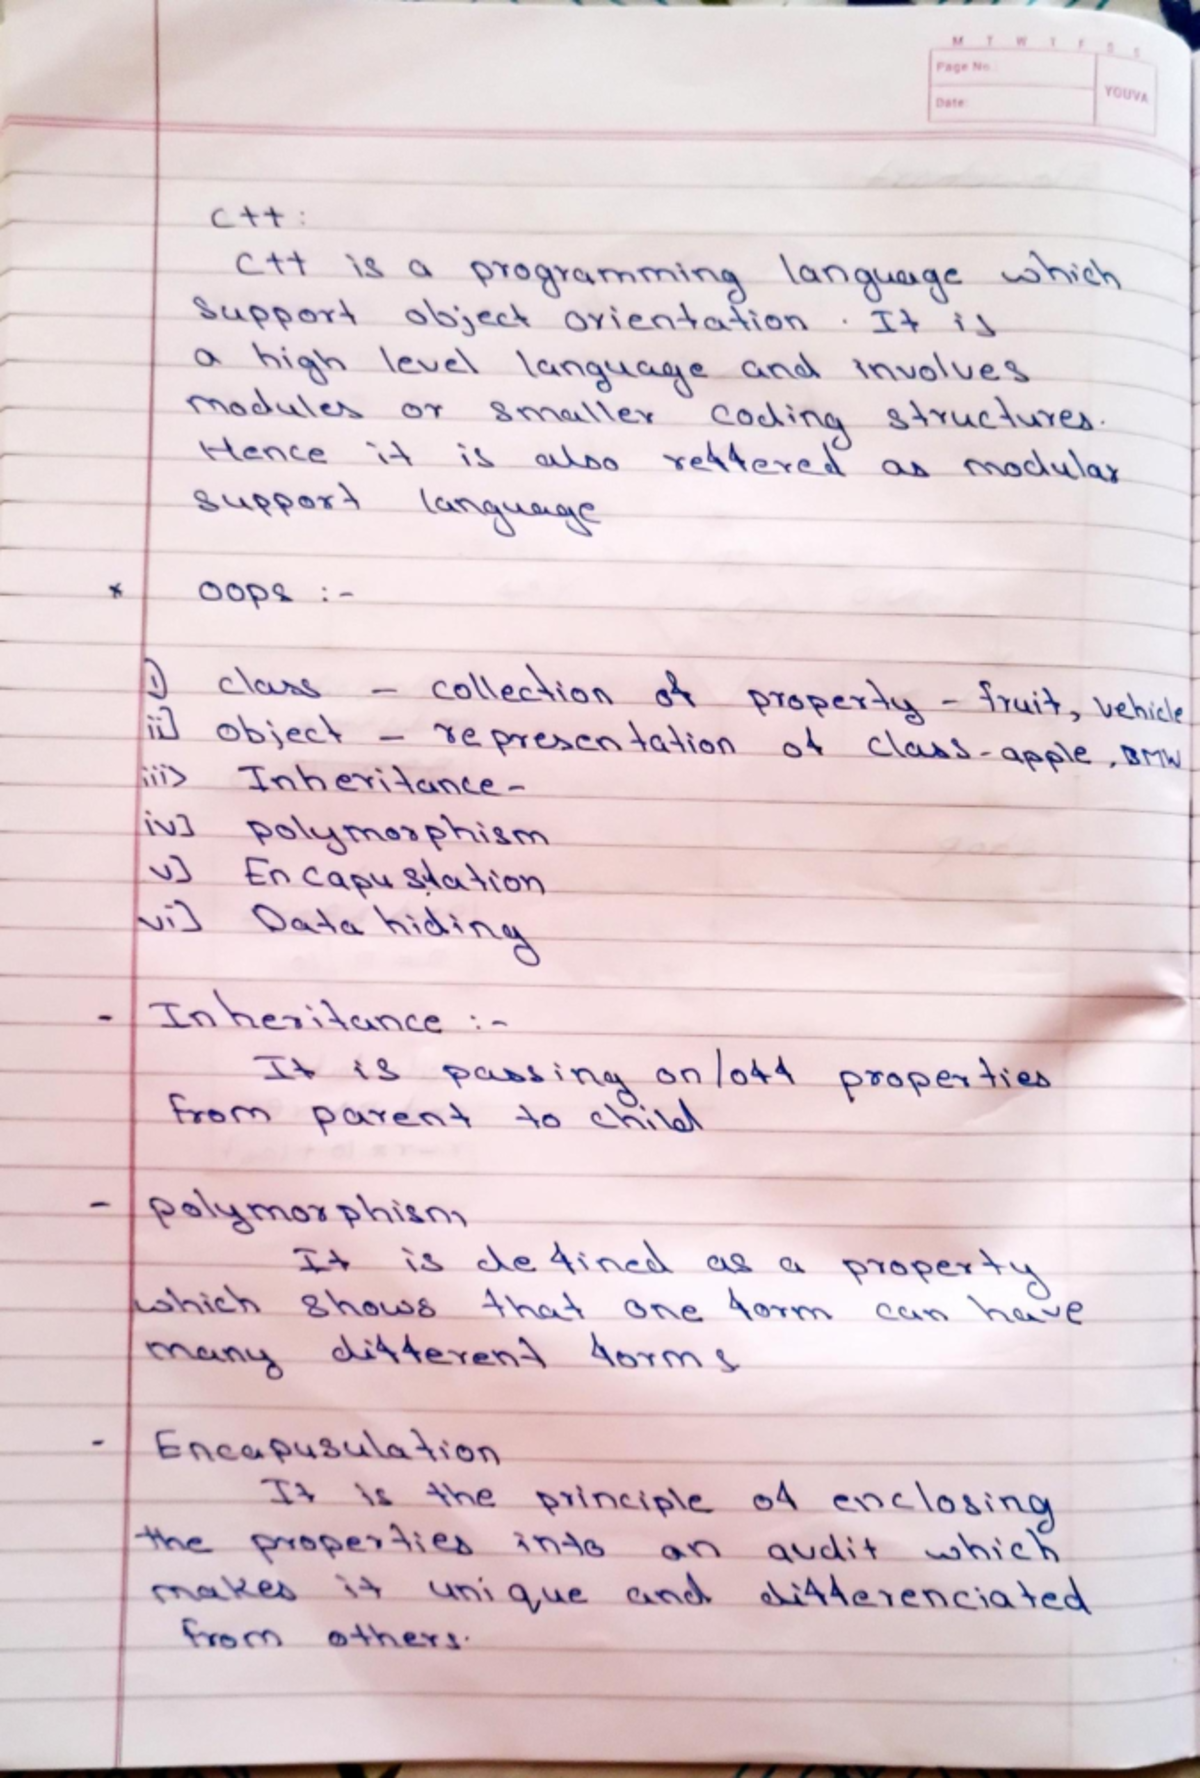 M T W T F S S
Page No.:
Date:
YOUVA
C++ :
C++ is a programming language which
support object orientation. It is
a high level language and involves
modules or smaller coding structures.
Hence it is also reffered as modular
support language
* OOPs :-
i) class - collection of property - fruit, vehicle
ii] object - representation of class - apple, BMW
iii> Inheritance -
iv] polymorphism
v] Encapustation
vi] Data hiding
- Inheritance :-
It is passing on/off properties
from parent to child
- polymorphism
It is defined as a property
which shows that one form can have
many different forms
- Encapusulation
It is the principle of enclosing
the properties into an audit which
makes it unique and differenciated
from others.